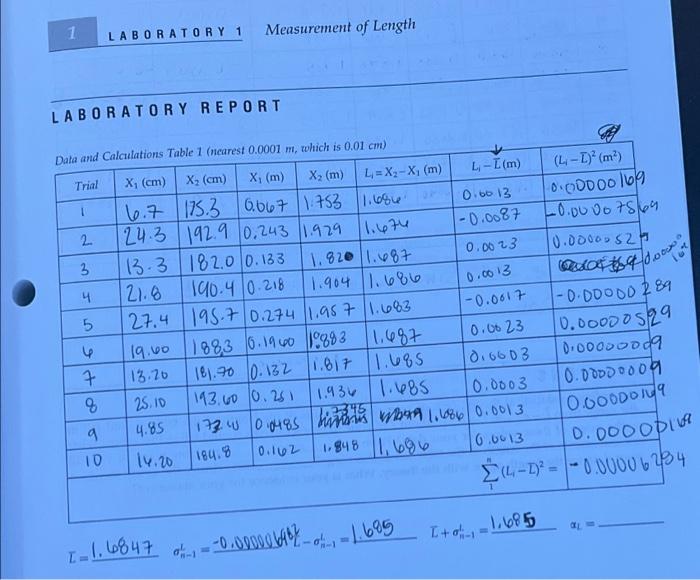 1 LABORATORY 1 Measurement of Length
LABORATORY REPORT
Data and Calculations Table 1 (nearest 0.0001 m, which is 0.01 cm)
Trial X₁ (cm) X₂ (cm) X₁ (m) X₂ (m) L₁ = X₂ – X₁ (m) L₁ – L̄ (m) (L₁ – L̄)² (m²)
1 6.7 175.3 0.067 1.753 1.686 0.0013 0.00000169
2 24.3 192.9 0.243 1.929 1.676 -0.0087 -0.00007569
3 13.3 182.0 0.133 1.820 1.687 0.0023 0.00000529
4 21.8 190.4 0.218 1.904 1.686 0.0013
5 27.4 195.7 0.274 1.957 1.683 -0.0017 -0.00000289
6 19.60 188.3 0.1960 1.883 1.687 0.0023 0.00000529
7 13.20 181.70 0.132 1.817 1.685 0.0003 0.00000009
8 25.10 193.60 0.251 1.936 1.685 0.0003 0.00000009
9 4.85 0.0485 1.7345 1.686 0.0013 0.00000169
10 16.20 184.8 0.162 1.848 1.686 0.0013
Σ (L₁ – L̄)² = -0.00006284
L̄ = 1.6847 σᴸₙ₋₁ = L̄ – σᴸₙ₋₁ = 1.685 L̄ + σᴸₙ₋₁ = 1.685 α_L =